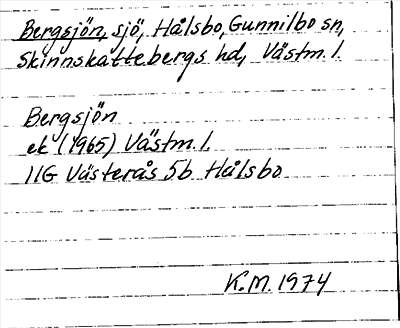 Bergsjön, sjö, Hålsbo, Gunnilbo sn,
Skinnskattebergs hd, Västm. l.
Bergsjön
ek (1965) Västm. l.
11G Västerås 5b Hålsbo
K.M. 1974